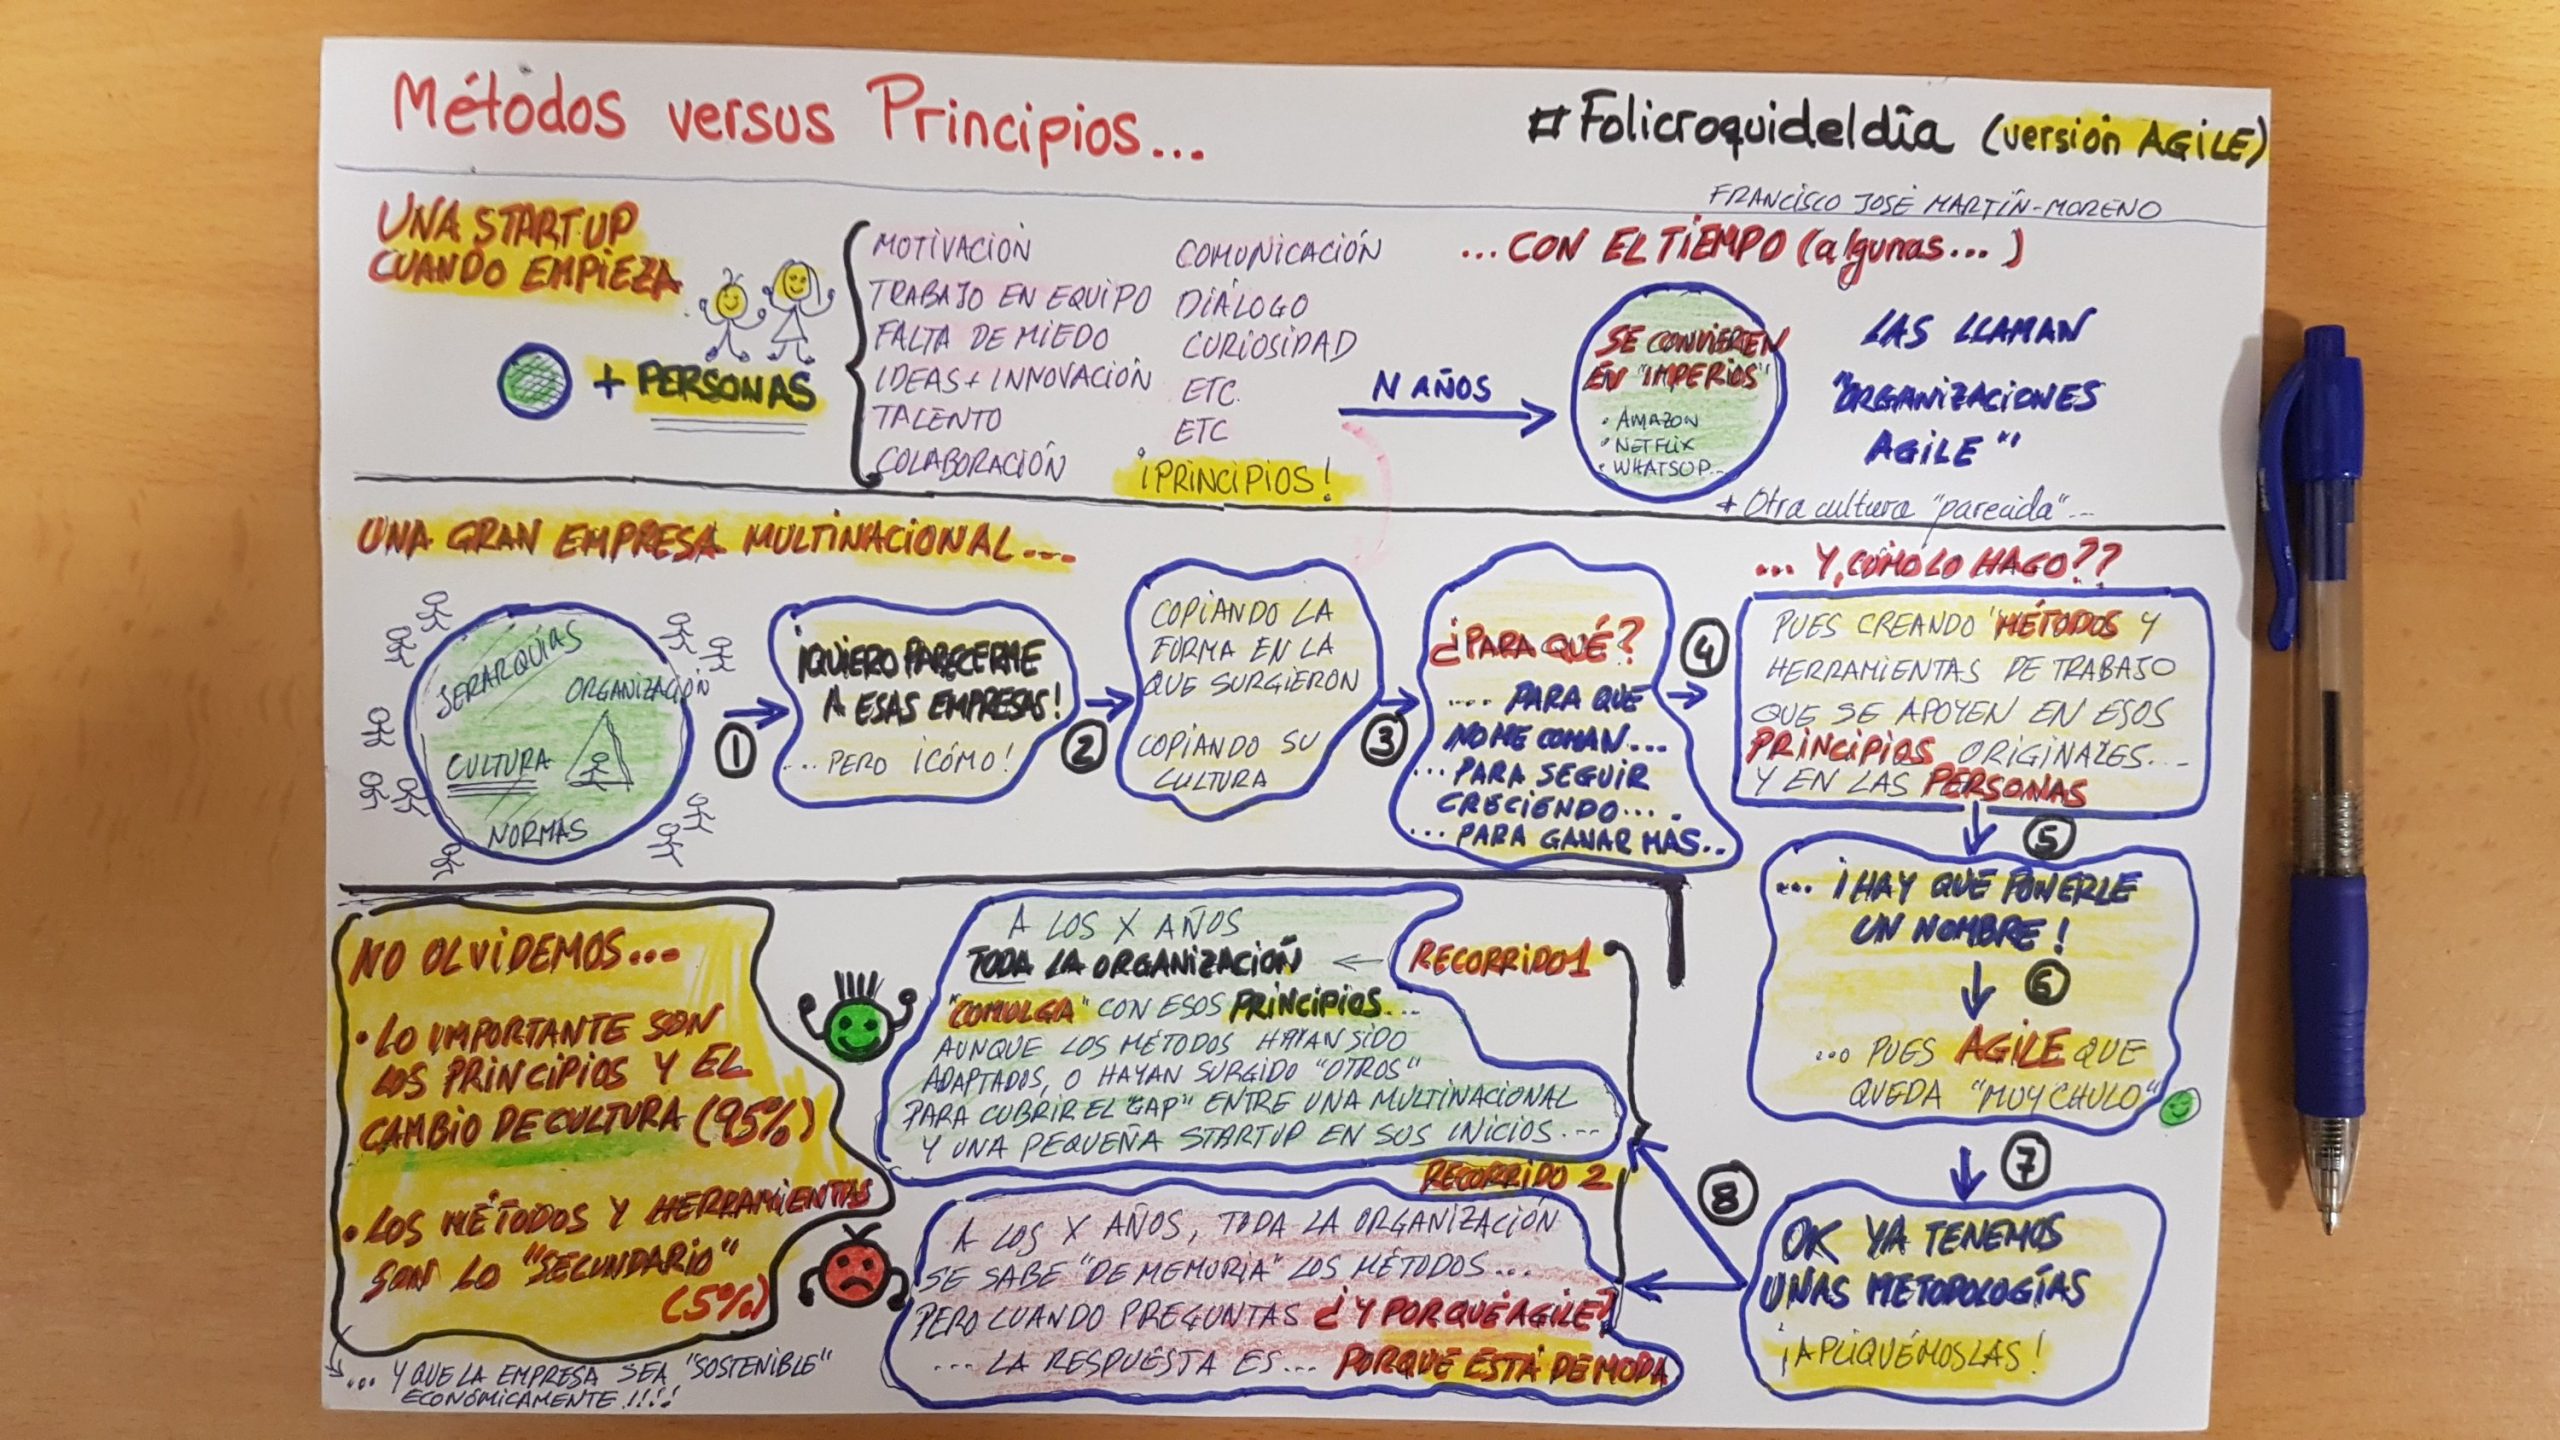 Métodos versus Principios...
#Folicroquideldía (versión AGILE)
FRANCISCO JOSÉ MARTÍN-MORENO
UNA STARTUP
CUANDO EMPIEZA
+ PERSONAS
MOTIVACIÓN
TRABAJO EN EQUIPO
FALTA DE MIEDO
IDEAS + INNOVACIÓN
TALENTO
COLABORACIÓN
COMUNICACIÓN
DIÁLOGO
CURIOSIDAD
ETC.
ETC
¡PRINCIPIOS!
N AÑOS
...CON EL TIEMPO (algunas...)
SE CONVIERTEN
EN "IMPERIOS"
• AMAZON
• NETFLIX
• WHATSUP...
LAS LLAMAN
"ORGANIZACIONES
AGILE"
+ Otra cultura "parecida"...
UNA GRAN EMPRESA MULTINACIONAL....
JERARQUÍAS
ORGANIZACIÓN
CULTURA
NORMAS
1
¡QUIERO PARECERME
A ESAS EMPRESAS!
... PERO ¡CÓMO!
2
COPIANDO LA
FORMA EN LA
QUE SURGIERON
COPIANDO SU
CULTURA
3
¿PARA QUÉ?
.... PARA QUE
NO ME COMAN...
... PARA SEGUIR
CRECIENDO....
... PARA GANAR MÁS..
4
... Y, CÓMO LO HAGO??
PUES CREANDO MÉTODOS Y
HERRAMIENTAS DE TRABAJO
QUE SE APOYEN EN ESOS
PRINCIPIOS ORIGINALES...
Y EN LAS PERSONAS
5
... ¡HAY QUE PONERLE
UN NOMBRE!
6
... PUES AGILE QUE
QUEDA "MUY CHULO"
7
OK YA TENEMOS
UNAS METODOLOGÍAS
¡APLIQUÉMOSLAS!
8
RECORRIDO 1
A LOS X AÑOS
TODA LA ORGANIZACIÓN
"COMULGA" CON ESOS PRINCIPIOS...
AUNQUE LOS MÉTODOS HAYAN SIDO
ADAPTADOS, O HAYAN SURGIDO "OTROS"
PARA CUBRIR EL "GAP" ENTRE UNA MULTINACIONAL
Y UNA PEQUEÑA STARTUP EN SUS INICIOS....
RECORRIDO 2
A LOS X AÑOS, TODA LA ORGANIZACIÓN
SE SABE "DE MEMORIA" LOS MÉTODOS...
PERO CUANDO PREGUNTAS ¿Y POR QUÉ AGILE?
... LA RESPUESTA ES... PORQUE ESTÁ DE MODA
NO OLVIDEMOS...
• LO IMPORTANTE SON
LOS PRINCIPIOS Y EL
CAMBIO DE CULTURA (95%)
• LOS MÉTODOS Y HERRAMIENTAS
SON LO "SECUNDARIO"
(5%)
... Y QUE LA EMPRESA SEA "SOSTENIBLE"
ECONÓMICAMENTE!!!!